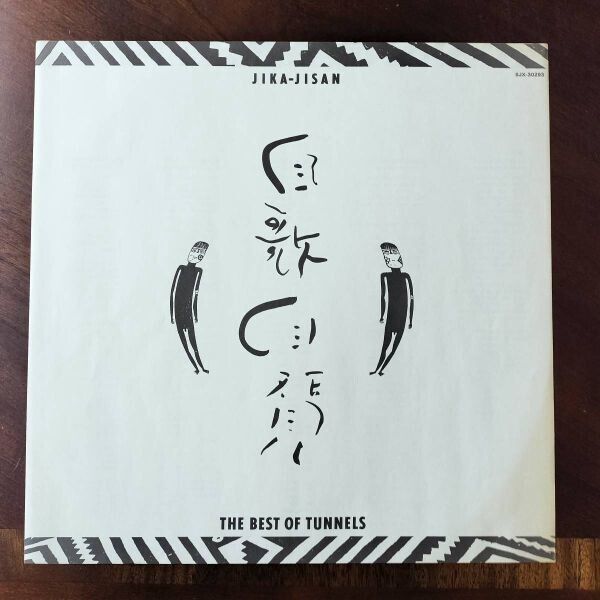 JIKA-JISAN
SJX-30293
自歌自賛
THE BEST OF TUNNELS